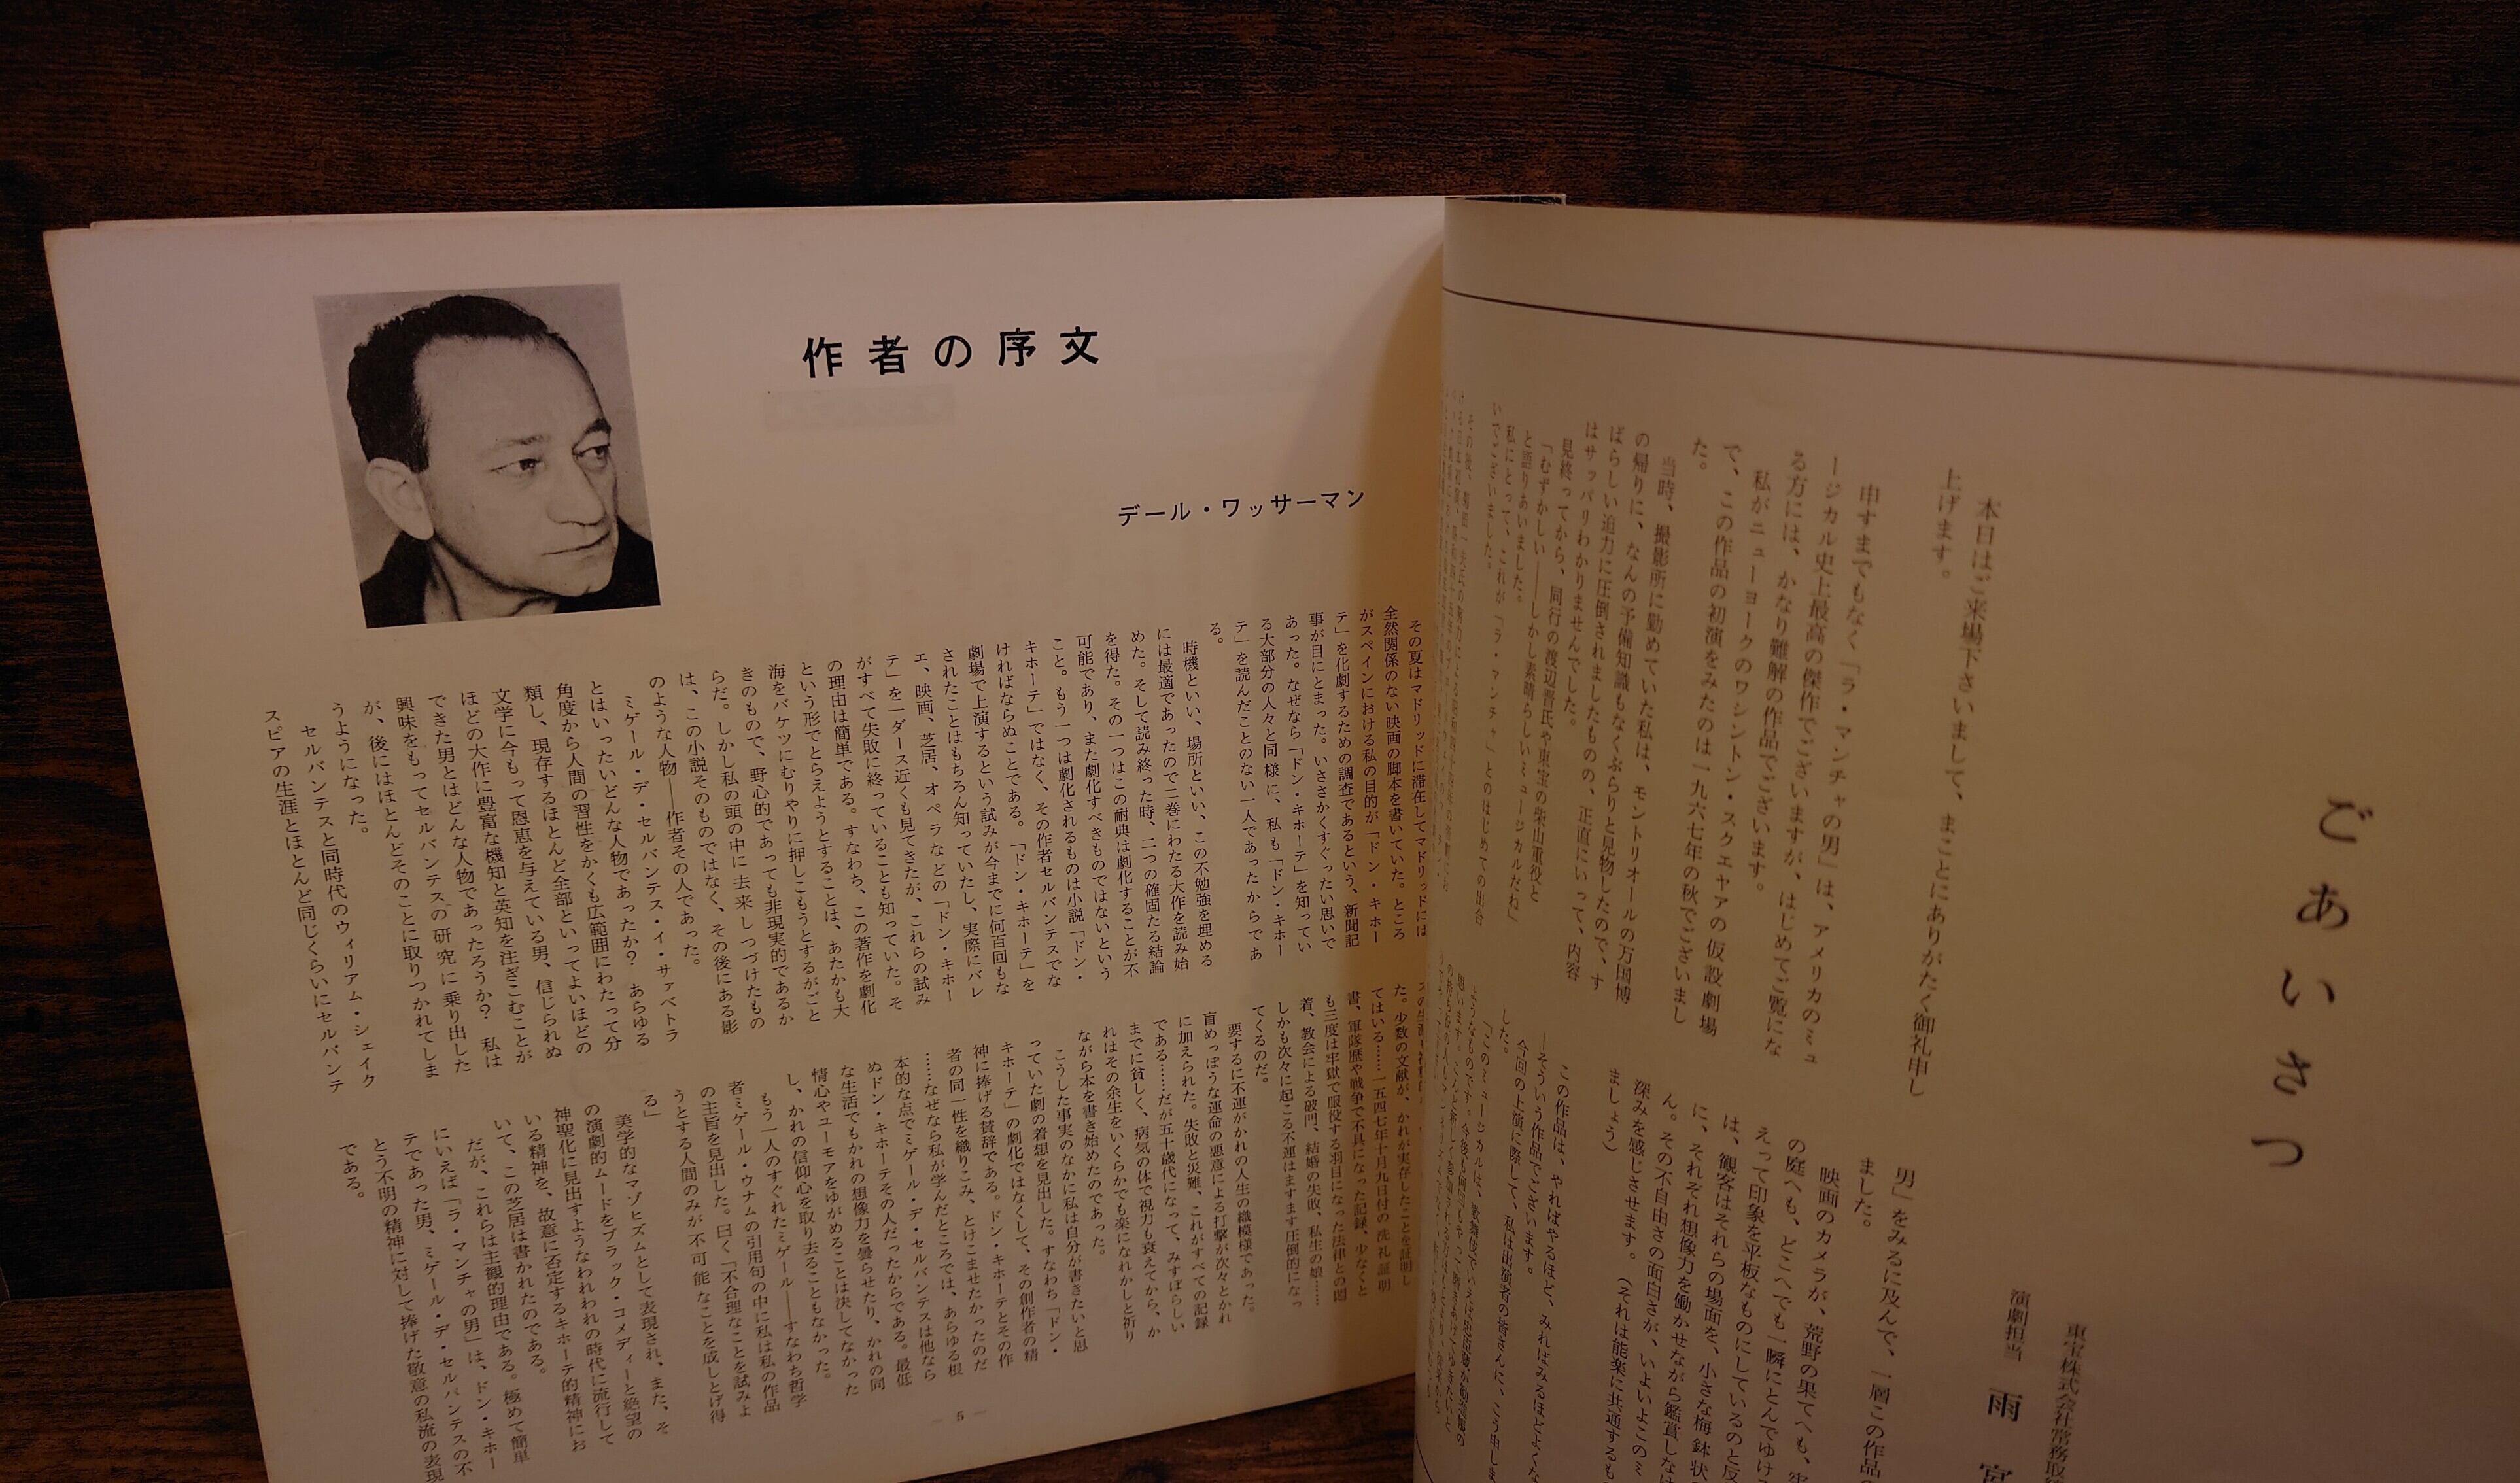 ごあいさつ
東宝株式会社常務取
演劇担当 雨宮
本日はご来場下さいまして、まことにありがたく御礼申し
上げます。
申すまでもなく「ラ・マンチャの男」は、アメリカのミュ
ージカル史上最高の傑作でございますが、はじめてご覧にな
る方には、かなり難解の作品でございます。
私がニューヨークのワシントン・スクエヤアの仮設劇場
で、この作品の初演をみたのは一九六七年の秋でございまし
た。
当時、撮影所に勤めていた私は、モントリオールの万国博
の帰りに、なんの予備知識もなくぶらりと見物したので、す
ばらしい迫力に圧倒されましたものの、正直にいって、内容
はサッパリわかりませんでした。
見終ってから、同行の渡辺晋氏や東宝の柴山重役と
「むずかしい——しかし素晴らしいミュージカルだね」
と語りあいました。
私にとって、これが「ラ・マンチャ」とのはじめての出合
いでございました。
男」をみるに及んで、一層この作品
ました。
映画のカメラが、荒野の果てへも、牢
の庭へも、どこへでも一瞬にとんでゆけ
えって印象を平板なものにしているのと反
は、観客はそれらの場面を、小さな梅鉢状
に、それぞれ想像力を働かせながら鑑賞しなけ
ん。その不自由さの面白さが、いよいよこのミ
深みを感じさせます。（それは能楽に共通するも
ましょう）
この作品は、やればやるほど、みればみるほどよくな
——そういう作品でございます。
今回の上演に際して、私は出演者の皆さんに、こう申しま
した。
作者の序文
デール・ワッサーマン
その夏はマドリッドに滞在してマドリッドには
全然関係のない映画の脚本を書いていた。ところ
がスペインにおける私の目的が「ドン・キホー
テ」を化劇するための調査であるという、新聞記
事が目にとまった。いささかくすぐったい思いで
あった。なぜなら「ドン・キホーテ」を知ってい
る大部分の人々と同様に、私も「ドン・キホー
テ」を読んだことのない一人であったからであ
る。
時機といい、場所といい、この不勉強を埋める
には最適であったので二巻にわたる大作を読み始
めた。そして読み終った時、二つの確固たる結論
を得た。その一つはこの耐典は劇化することが不
可能であり、また劇化すべきものではないという
こと。もう一つは劇化されるものは小説「ドン・
キホーテ」ではなく、その作者セルバンテスでな
ければならぬことである。「ドン・キホーテ」を
劇場で上演するという試みが今までに何百回もな
されたことはもちろん知っていたし、実際にバレ
エ、映画、芝居、オペラなどの「ドン・キホー
テ」を一ダース近くも見てきたが、これらの試み
がすべて失敗に終っていることも知っていた。そ
の理由は簡単である。すなわち、この著作を劇化
という形でとらえようとすることは、あたかも大
海をバケツにむりやりに押しこもうとするがごと
きのもので、野心的であっても非現実的であるか
らだ。しかし私の頭の中に去来しつづけたもの
は、この小説そのものではなく、その後にある影
のような人物——作者その人であった。
ミゲール・デ・セルバンテス・イ・サァベトラ
とはいったいどんな人物であったか？ あらゆる
角度から人間の習性をかくも広範囲にわたって分
類し、現存するほとんど全部といってよいほどの
文学に今もって恩恵を与えている男、信じられぬ
ほどの大作に豊富な機知と英知を注ぎこむことが
できた男とはどんな人物であったろうか？ 私は
興味をもってセルバンテスの研究に乗り出した
が、後にはほとんどそのことに取りつかれてしま
うようになった。
セルバンテスと同時代のウィリアム・シェイク
スピアの生涯とほとんど同じくらいにセルバンテ
た。少数の文献が、かれが実存したことを証明し
てはいる……一五四七年十月九日付の洗礼証明
書、軍隊歴や戦争で不具になった記録、少なくと
も三度は牢獄で服役する羽目になった法律との悶
着、教会による破門、結婚の失敗、私生の娘……
しかも次々に起こる不運はますます圧倒的になっ
てくるのだ。
要するに不運がかれの人生の織模様であった。
盲めっぽうな運命の悪意による打撃が次々とかれ
に加えられた。失敗と災難、これがすべての記録
である……だが五十歳代になって、みすぼらしい
までに貧しく、病気の体で視力も衰えてから、か
れはその余生をいくらかでも楽になれかしと祈り
ながら本を書き始めたのであった。
こうした事実のなかに私は自分が書きたいと思
っていた劇の着想を見出した。すなわち「ドン・
キホーテ」の劇化ではなくして、その創作者の精
神に捧げる賛辞である。ドン・キホーテとその作
者の同一性を織りこみ、とけこませたかったのだ
……なぜなら私が学んだところでは、あらゆる根
本的な点でミゲール・デ・セルバンテスは他なら
ぬドン・キホーテその人だったからである。最低
な生活でもかれの想像力を曇らせたり、かれの同
情心やユーモアをゆがめることは決してなかった
し、かれの信仰心を取り去ることもなかった。
もう一人のすぐれたミゲール——すなわち哲学
者ミゲール・ウナムの引用句の中に私は私の作品
の主旨を見出した。曰く「不合理なことを試みよ
うとする人間のみが不可能なことを成しとげ得
る」
美学的なマゾヒズムとして表現され、また、そ
の演劇的ムードをブラック・コメディーと絶望の
神聖化に見出すようなわれわれの時代に流行して
いる精神を、故意に否定するキホーテ的精神にお
いて、この芝居は書かれたのである。
だが、これらは主観的理由である。極めて簡単
にいえば「ラ・マンチャの男」は、ドン・キホー
テであった男、ミゲール・デ・セルバンテスの不
とう不明の精神に対して捧げた敬意の私流の表現
である。
— 5 —